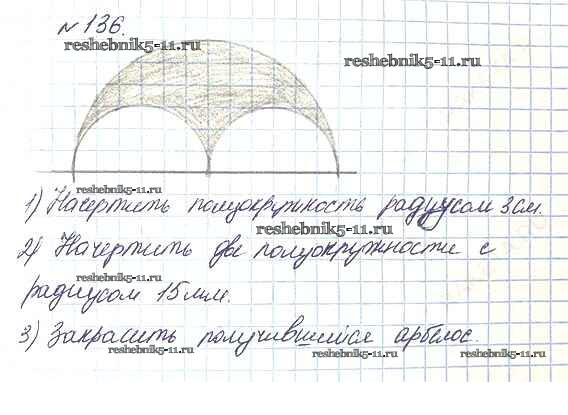 № 136.
reshebnik5-11.ru
reshebnik5-11.ru
reshebnik5-11.ru
1) Начертить полуокружность радиусом 3см.
reshebnik5-11.ru
2) Начертить две полуокружности с
reshebnik5-11.ru
радиусом 15мм.
3) Закрасить получившийся арбелос.
reshebnik5-11.ru
reshebnik5-11.ru
reshebnik5-11.ru